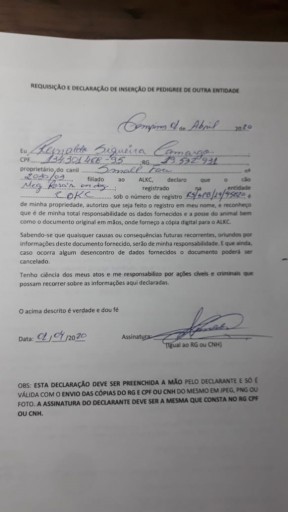 REQUISIÇÃO E DECLARAÇÃO DE INSERÇÃO DE PEDIGREE DE OUTRA ENTIDADE
de Abril 2020
Eu, Siqueira Camargo
CPF RG
proprietário do canil nº
filiado ao ALKC, declaro que o cão
registrado na entidade
sob o número de registro
de minha propriedade, autorizo que seja feito o registro em meu nome, e reconheço
que é de minha total responsabilidade os dados fornecidos e a posse do animal bem
como o documento original em mãos, onde forneço a cópia digital para o ALKC.
Sabendo-se que quaisquer causas ou consequências futuras recorrentes, oriundos por
informações deste documento fornecido, serão de minha responsabilidade. E que ainda,
caso ocorra algum desencontro de dados fornecidos o documento poderá ser
cancelado.
Tenho ciência dos meus atos e me responsabilizo por ações cíveis e criminais que
possam recorrer sobre as informações aqui declaradas.
O acima descrito é verdade e dou fé
Data: 01/04/2020 Assinatura:
(Igual ao RG ou CNH)
OBS: ESTA DECLARAÇÃO DEVE SER PREENCHIDA À MÃO PELO DECLARANTE E SÓ É
VÁLIDA COM O ENVIO DAS CÓPIAS DO RG E CPF OU CNH DO MESMO EM JPEG, PNG OU
FOTO. A ASSINATURA DO DECLARANTE DEVE SER A MESMA QUE CONSTA NO RG CPF
OU CNH.